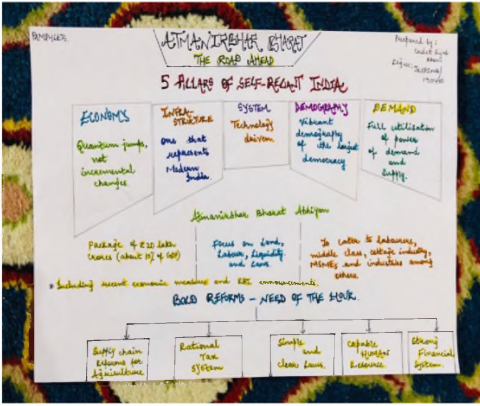 ATMANIRBHAR BHARAT
THE ROAD AHEAD
Prepared by:
5 PILLARS OF SELF-RELIANT INDIA
ECONOMY
Quantum jumps,
not
incremental
changes
INFRA-
STRUCTURE
One that
represents
Modern
India
SYSTEM
Technology
driven
DEMOGRAPHY
Vibrant
demography
of the largest
democracy
DEMAND
Full utilisation
of power
of demand
and
Supply.
Atmanirbhar Bharat Abhiyan
Package of ₹20 lakh
crores (about 10% of GDP)
Focus on Land,
Labour, Liquidity
and Laws
To cater to labourers,
middle class, cottage industry,
MSMEs and industries among
others.
* Including recent economic measures and RBI announcements.
BOLD REFORMS - NEED OF THE HOUR
Supply chain
Reforms for
Agriculture
Rational
Tax
System
Simple
and
clear Laws
Capable
Human
Resource
Strong
Financial
System